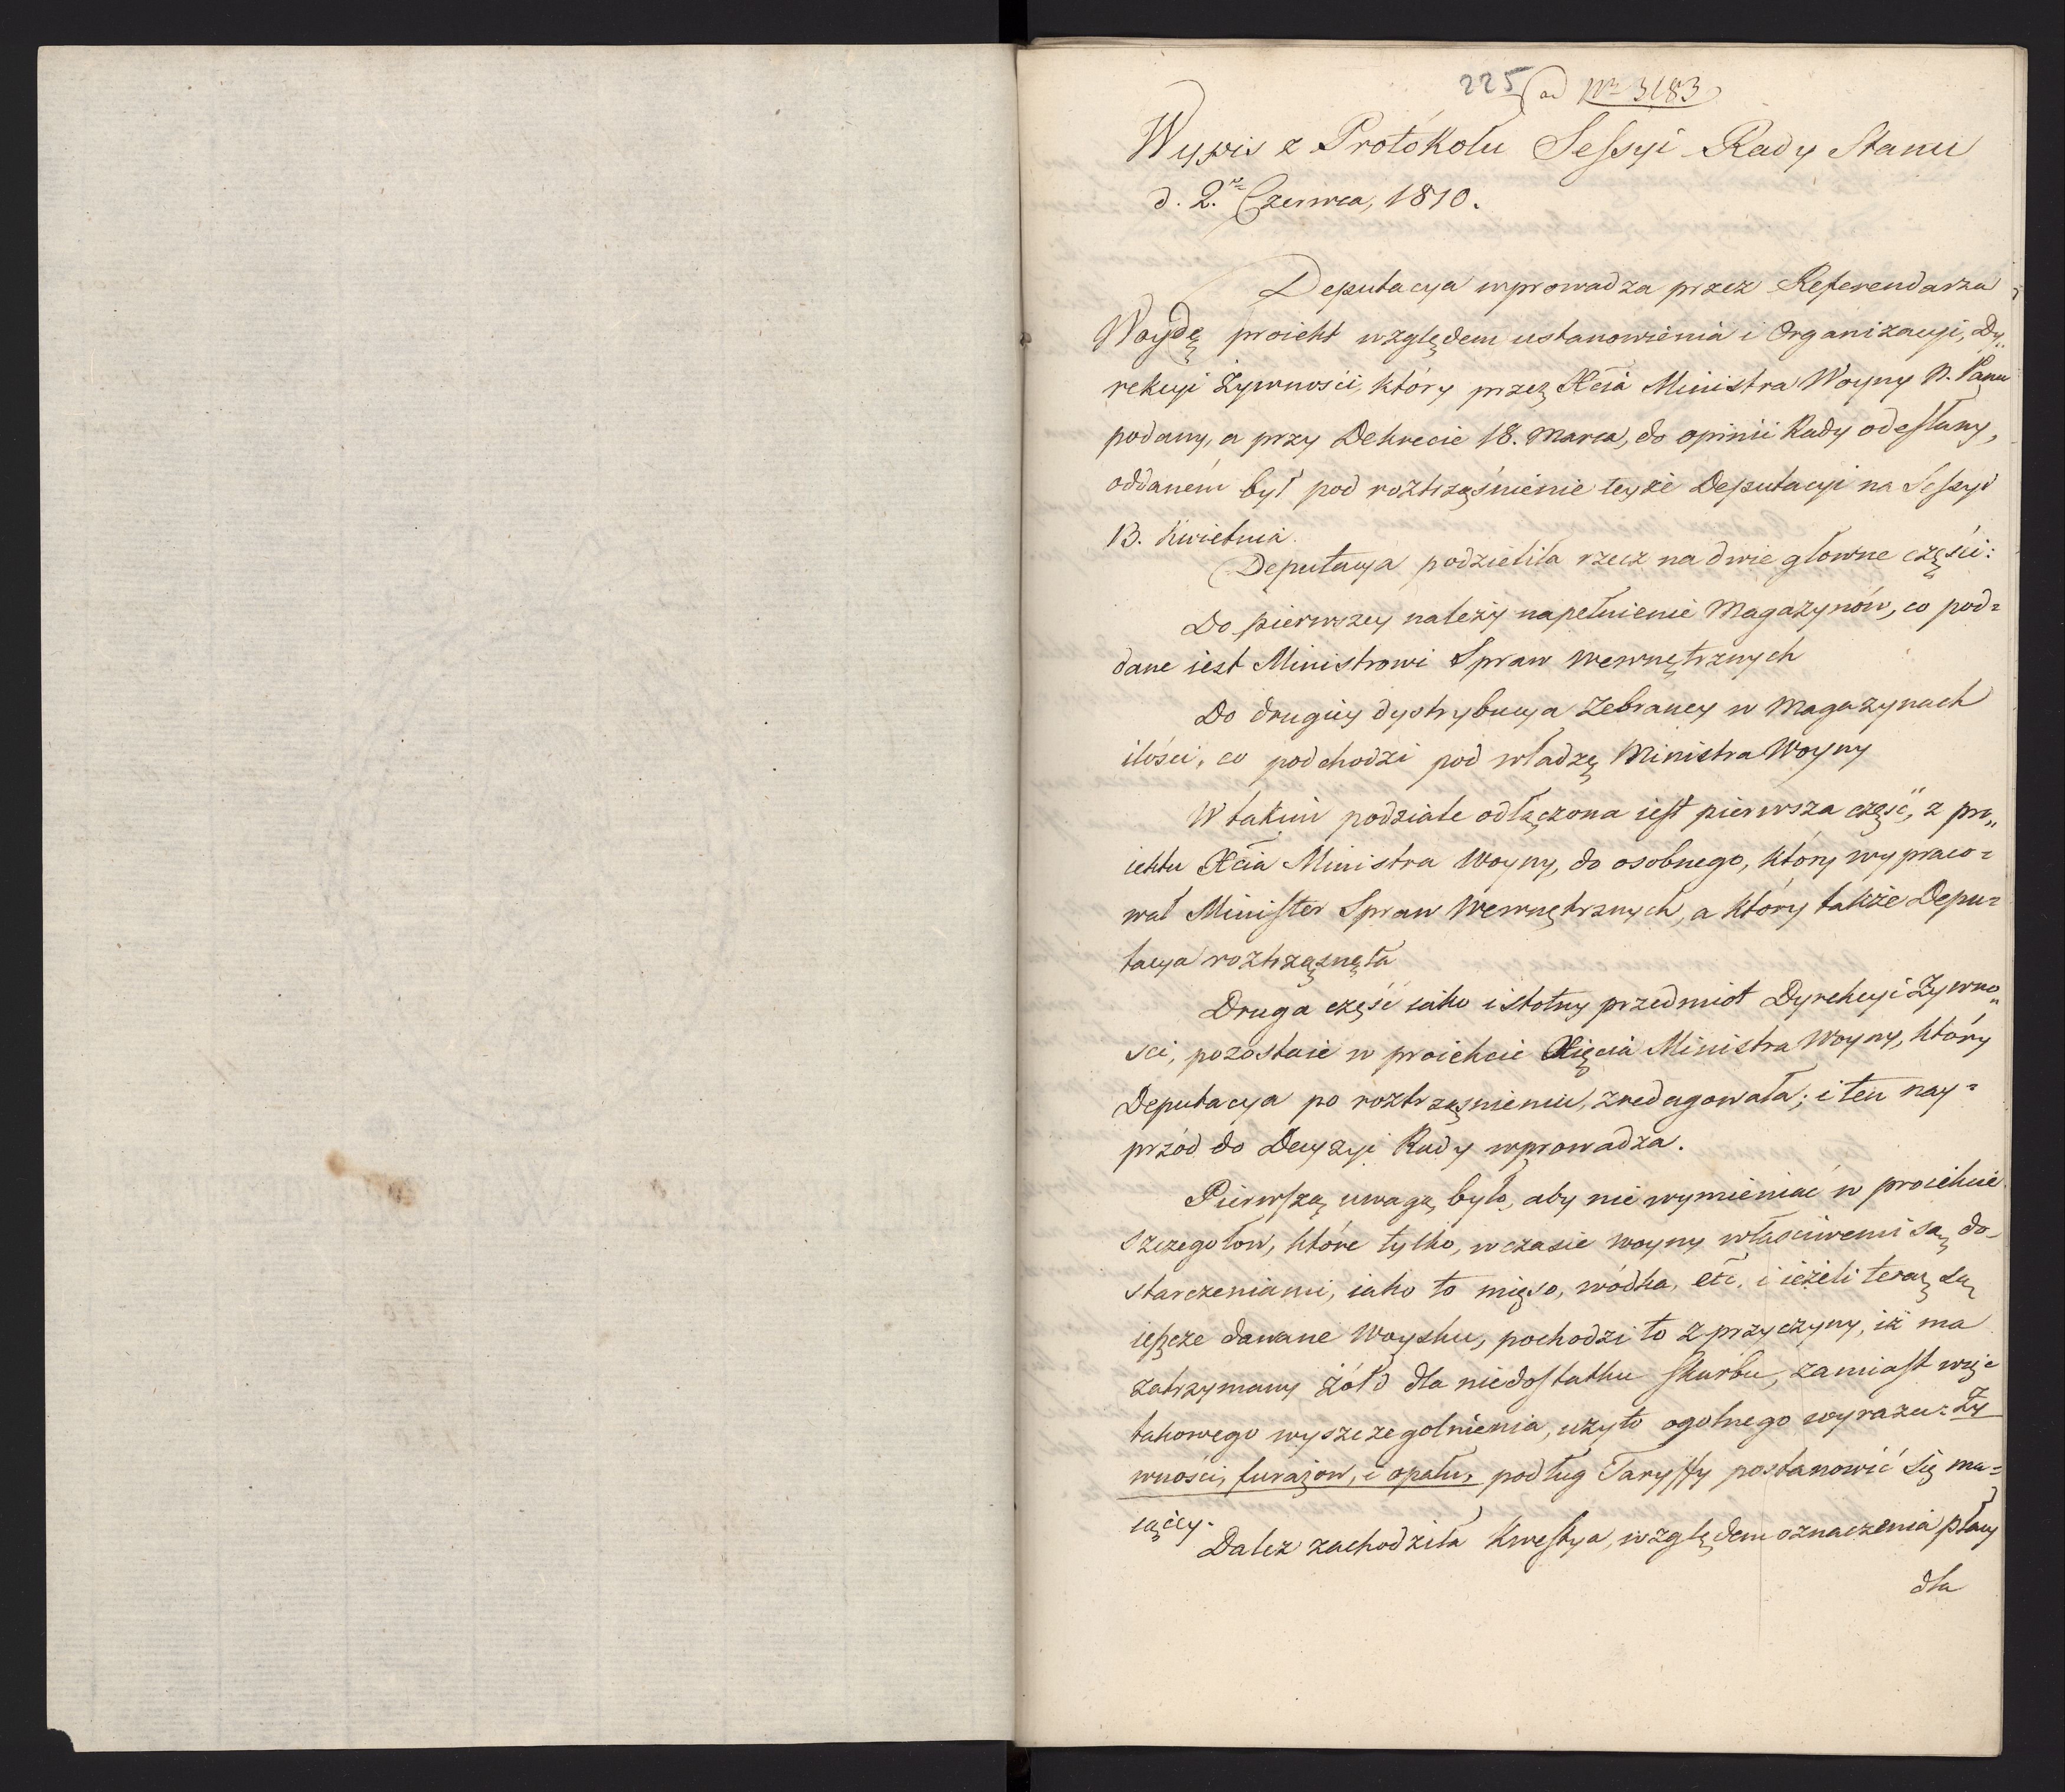 225 ad Nr 3183
Wypis z Protokołu Sessyi Rady Stanu
d. 2. Czerwca, 1810.
Deputacya wprowadza przez Referendarza
Woydę proiekt względem ustanowienia i Organizacyi, Dy„
rekcyi Żywności, który przez Xcia Ministra Woyny N. Panu
podany, a przy Dekrecie 18. Marca, do opinii Rady odesłany,
oddanem był pod roztrząśnienie teyże Deputacyi na Sessyi
13. Kwietnia.
Deputacya podzieliła rzecz na dwie głowne części:
Do pierwszey należy napełnienie Magazynów, co pod=
dane iest Ministrowi Spraw Wewnętrznych
Do drugiey dystrybucya Zebraney w Magazynach
ilości, co podchodzi pod władzę Ministra Woyny
W takim podziale odłączona iest pierwsza część, z pro„
iektu Xcia Ministra Woyny, do osobnego, który wypraco=
wał Minister Spraw Wewnętrznych, a który także Depu=
tacya roztrząsnęła
Druga część iako istotny przedmiot Dyrekcyi Żywno„
sci, pozostaie w proiekcie Xięcia Ministra Woyny, który
Deputacya po roztrząsnieniu, zredagowała; i ten nay=
przód do Decyzyi Rady wprowadza.
Pierwszą uwagą było, aby nie wymieniać w proiekcie
szczegołow, które tylko, w czasie woyny właściwemi są do-
starczeniami, iako to mięso, wódka, etc. i ieżeli teraz są
ieszcze dawane Woysku, pochodzi to z przyczyny, iż ma
zatrzymany żółd dla niedostatku skarbu, zamiast więc
takowego wyszczegolnienia, użyto ogolnego wyrazu: Ży
wności, furażow, i opału, podług Taryffy postanowić się ma=
iącey.
Dalez zachodziła Kwestya, względem oznaczenia płacy
dla